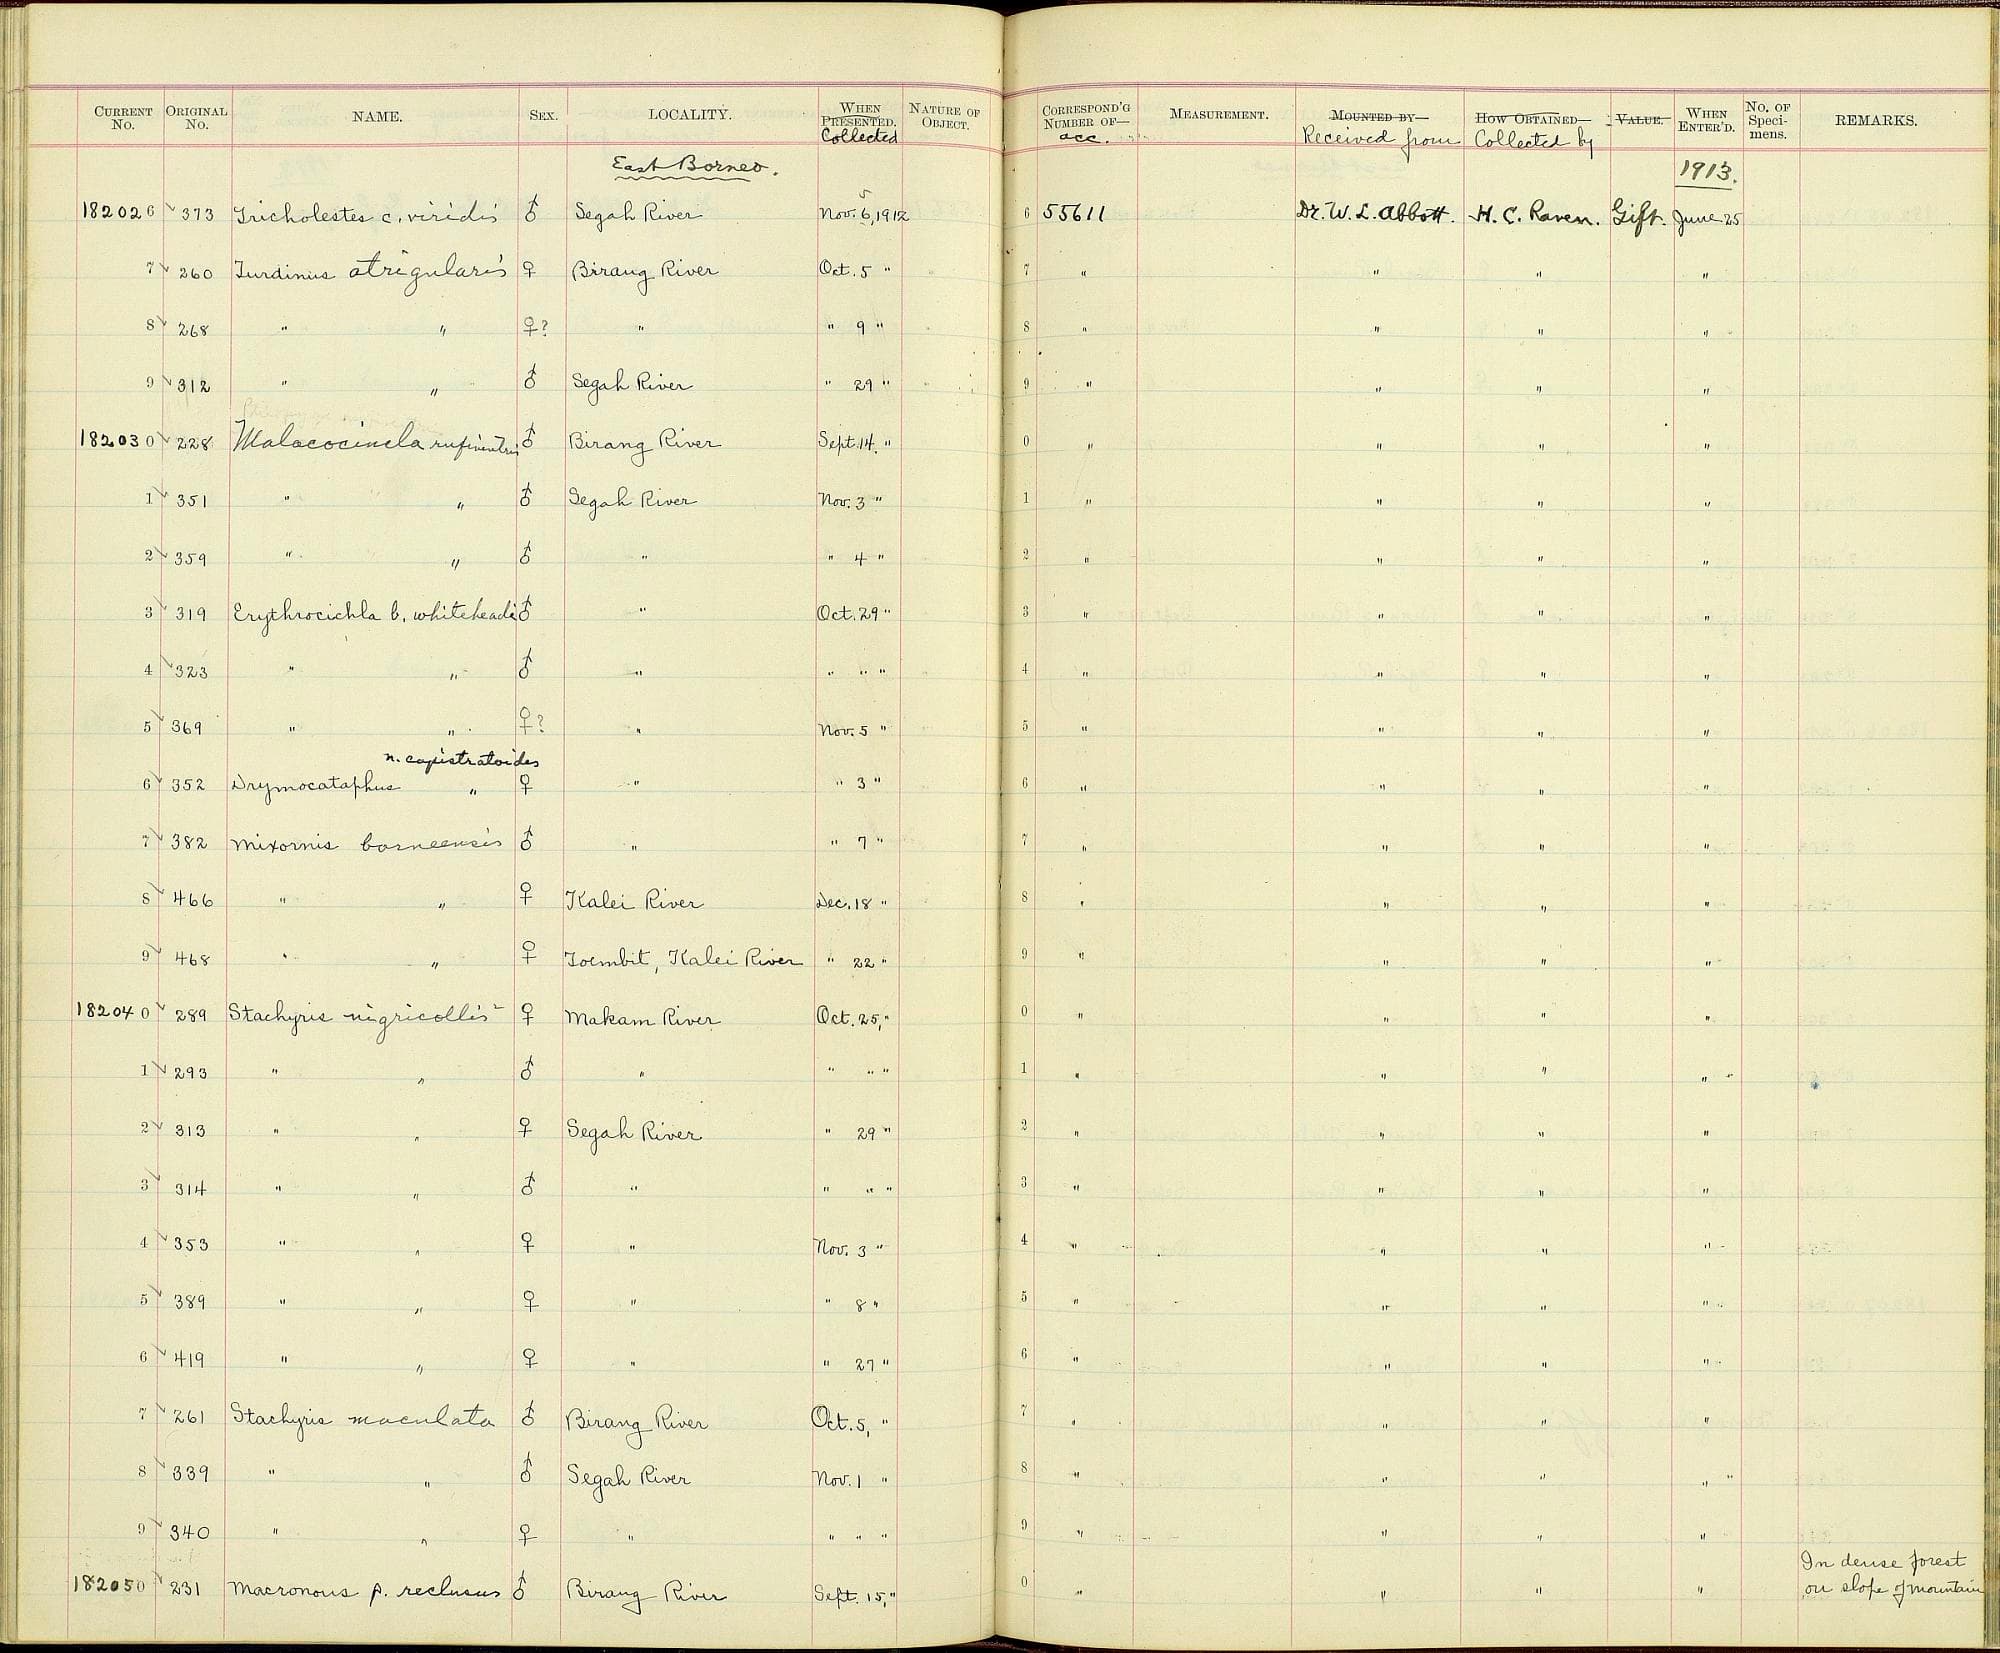 CURRENT No. ORIGINAL No. NAME. SEX. LOCALITY. WHEN PRESENTED. Collected NATURE OF OBJECT. CORRESPOND'G NUMBER OF— acc. MEASUREMENT. MOUNTED BY— Received from HOW OBTAINED— Collected by VALUE. WHEN ENTER'D. No. OF Speci-mens. REMARKS.
East Borneo. 1913.
5
182026 373 Tricholestes c. viridis ♂ Segah River Nov. 6, 1912 6 55611 Dr. W. L. Abbott. H. C. Raven. Gift. June 25
7 260 Turdinus atrigularis ♀ Birang River Oct. 5 " 7 " " " "
8 268 " " ♀? " " 9 " 8 " " " "
9 312 " " ♂ Segah River " 29 " 9 " " " "
182030 228 Malacocincla rufiventris ♂ Birang River Sept. 14. " 0 " " " "
1 351 " " ♂ Segah River Nov. 3 " 1 " " " "
2 359 " " ♂ " " 4 " 2 " " " "
3 319 Erythrocichla b. whiteheadi ♂ " Oct. 29 " 3 " " " "
4 323 " " ♂ " " " " 4 " " " "
5 369 " " ♀? " Nov. 5 " 5 " " " "
n. capistratoides
6 352 Drymocataphus " ♀ " " 3 " 6 " " " "
7 382 Mixornis borneensis ♂ " " 7 " 7 " " " "
8 466 " " ♀ Kalei River Dec. 18 " 8 " " " "
9 468 " " ♀ Toembit, Kalei River " 22 " 9 " " " "
182040 289 Stachyris nigricollis ♀ Makam River Oct. 25, " 0 " " " "
1 293 " " ♂ " " " " 1 " " " "
2 313 " " ♀ Segah River " 29 " 2 " " " "
3 314 " " ♂ " " " " 3 " " " "
4 353 " " ♀ " Nov. 3 " 4 " " " "
5 389 " " ♀ " " 8 " 5 " " " "
6 419 " " ♀ " " 27 " 6 " " " "
7 261 Stachyris maculata ♂ Birang River Oct. 5, " 7 " " " "
8 339 " " ♂ Segah River Nov. 1 " 8 " " " " "
9 340 " " ♀ " " " " 9 " " " "
182050 231 Macronous p. reclusus ♂ Birang River Sept. 15, " 0 " " " " In dense forest
on slope of mountain